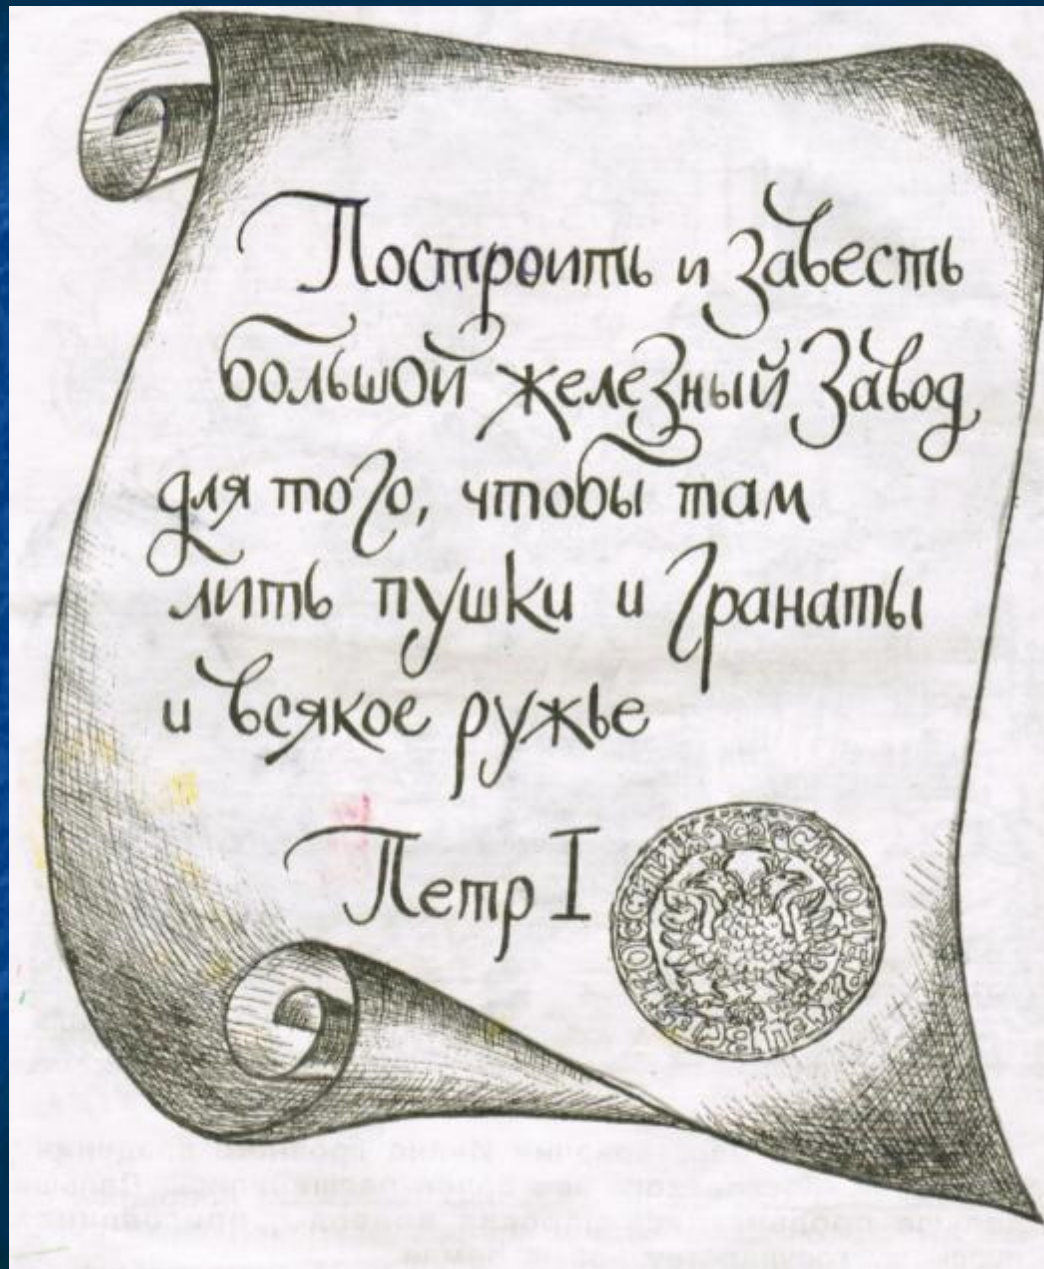 Построить и завесть
большой железный завод
для того, чтобы там
лить пушки и гранаты
и всякое ружье
Петр I